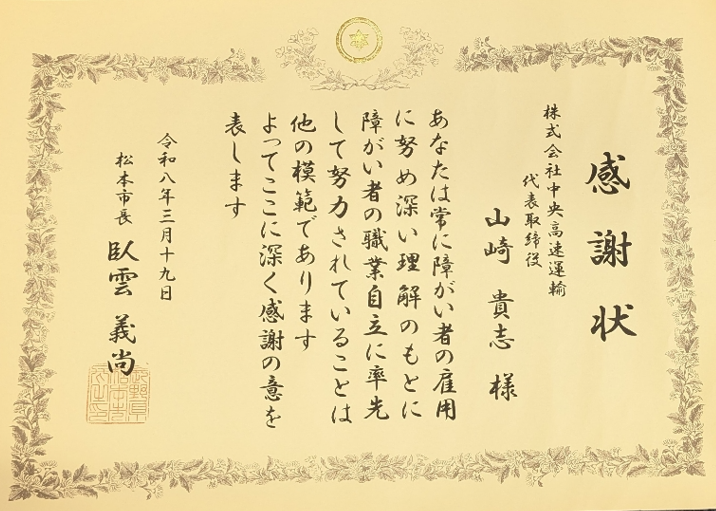 感謝状
株式会社中央高速運輸
代表取締役
山崎貴志様
あなたは常に障がい者の雇用
に努め深い理解のもとに
障がい者の職業自立に率先
して努力されていることは
他の模範であります
よってここに深く感謝の意を
表します
令和八年三月十九日
松本市長 臥雲義尚